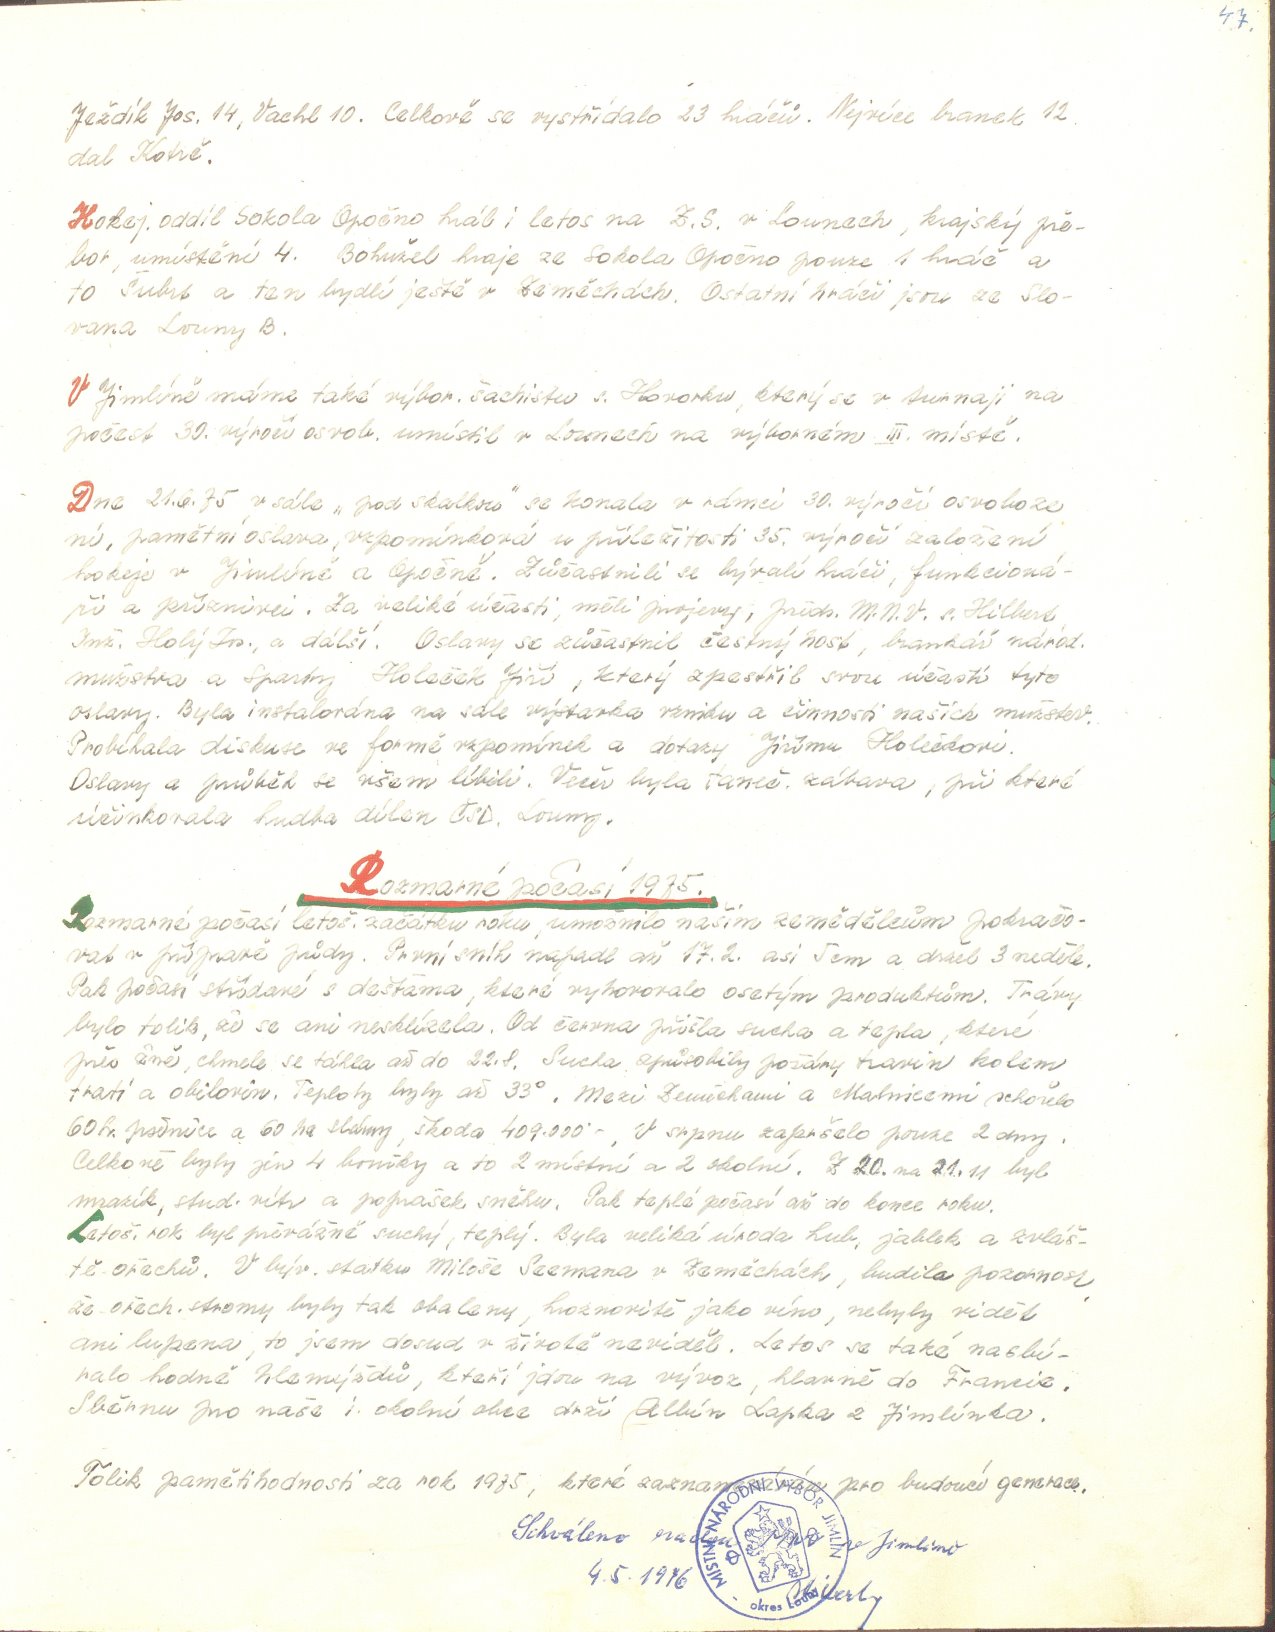 47.
Ježdík Jos. 14, Vachl 10. Celkově se vystřídalo 23 hráčů. Nejvíce branek 12
dal Kotrč.
Hokej. oddíl Sokola Opočno hrál i letos na Z.S. v Lounech, krajský pře-
bor, umístění 4. Bohužel hraje ze Sokola Opočno pouze 1 hráč a
to Šubrt a ten bydlí ještě v Zeměchách. Ostatní hráči jsou ze Slo-
vana Louny B.
V Jimlíně máme také výbor. šachistu s. Hovorku, který se v turnaji na
počest 30. výročí osvob. umístil v Lounech na výborném III. místě.
Dne 21.6.75 v sále „pod skalkou" se konala v rámci 30. výročí osvoboze
ní, pamětní oslava, vzpomínková u příležitosti 35. výročí založení
hokeje v Jimlíně a Opočně. Zúčastnili se bývalí hráči, funkcioná-
ři a příznivci. Za veliké účasti, měli projevy, předs. M.N.V. s. Hilbert
Inž. Holý Jos., a dálší. Oslavy se zúčastnil čestný host, brankář národ.
mužstva a Sparty Holeček Jiří, který zpestřil svou účastí tyto
oslavy. Byla instalována na sále výstavka vzniku a činnosti našich mužstev.
Probíhala diskuse ve formě vzpomínek a dotazy Jiřímu Holečkovi.
Oslavy a průběh se všem líbili. Večer byla taneč. zábava, při které
účinkovala hudba dílen ČSD. Louny.
Rozmarné počasí 1975.
Rozmarné počasí letoš. začátku roku, umožnilo našim zemědělcům pokračo-
vat v přípravě půdy. První sníh napadl až 17.2. asi 5cm a držel 3 neděle.
Pak počasí střídavé s deštěma, které vyhovovalo osetým produktům. Trávy
bylo tolik, že se ani nesklízela. Od června přišla sucha a tepla, které
přes žně, chmele se táhla až do 22.8. Sucha způsobily požáry travin kolem
tratí a obilovin. Teploty byly až 33°. Mezi Zeměchami a Malnicemi schořelo
60 hr. pšenice a 60 ha slámy, škoda 409.000 -, V srpnu zapršelo pouze 2 dny.
Celkově byly jen 4 bouřky a to 2 místní a 2 okolní. Z 20. na 21. 11 byl
mrazík, stud. vítr a poprašek sněhu. Pak teplé počasí až do konce roku.
Letoš. rok byl převážně suchý, teplý. Byla veliká úroda hub, jablek a zvláš-
tě ořechů. V býv. statku Miloše Seemana v Zeměchách, budila pozornost,
že ořech. stromy byly tak obaleny, hroznovitě jako víno, nebyly vidět
ani lupena, to jsem dosud v životě neviděl. Letos se také nasbí-
ralo hodně hlemýžďů, kteří jdou na vývoz, hlavně do Francie.
Sběrnu pro naše i okolní obce drží Albín Lapka z Jimlínka.
Tolik pamětihodnosti za rok 1975, které zaznamenávám pro budoucí generace.
Schváleno radou MNV v Jimlíně
4.5.1976
MÍSTNÍ NÁRODNÍ VÝBOR JIMLÍN
okres Louny